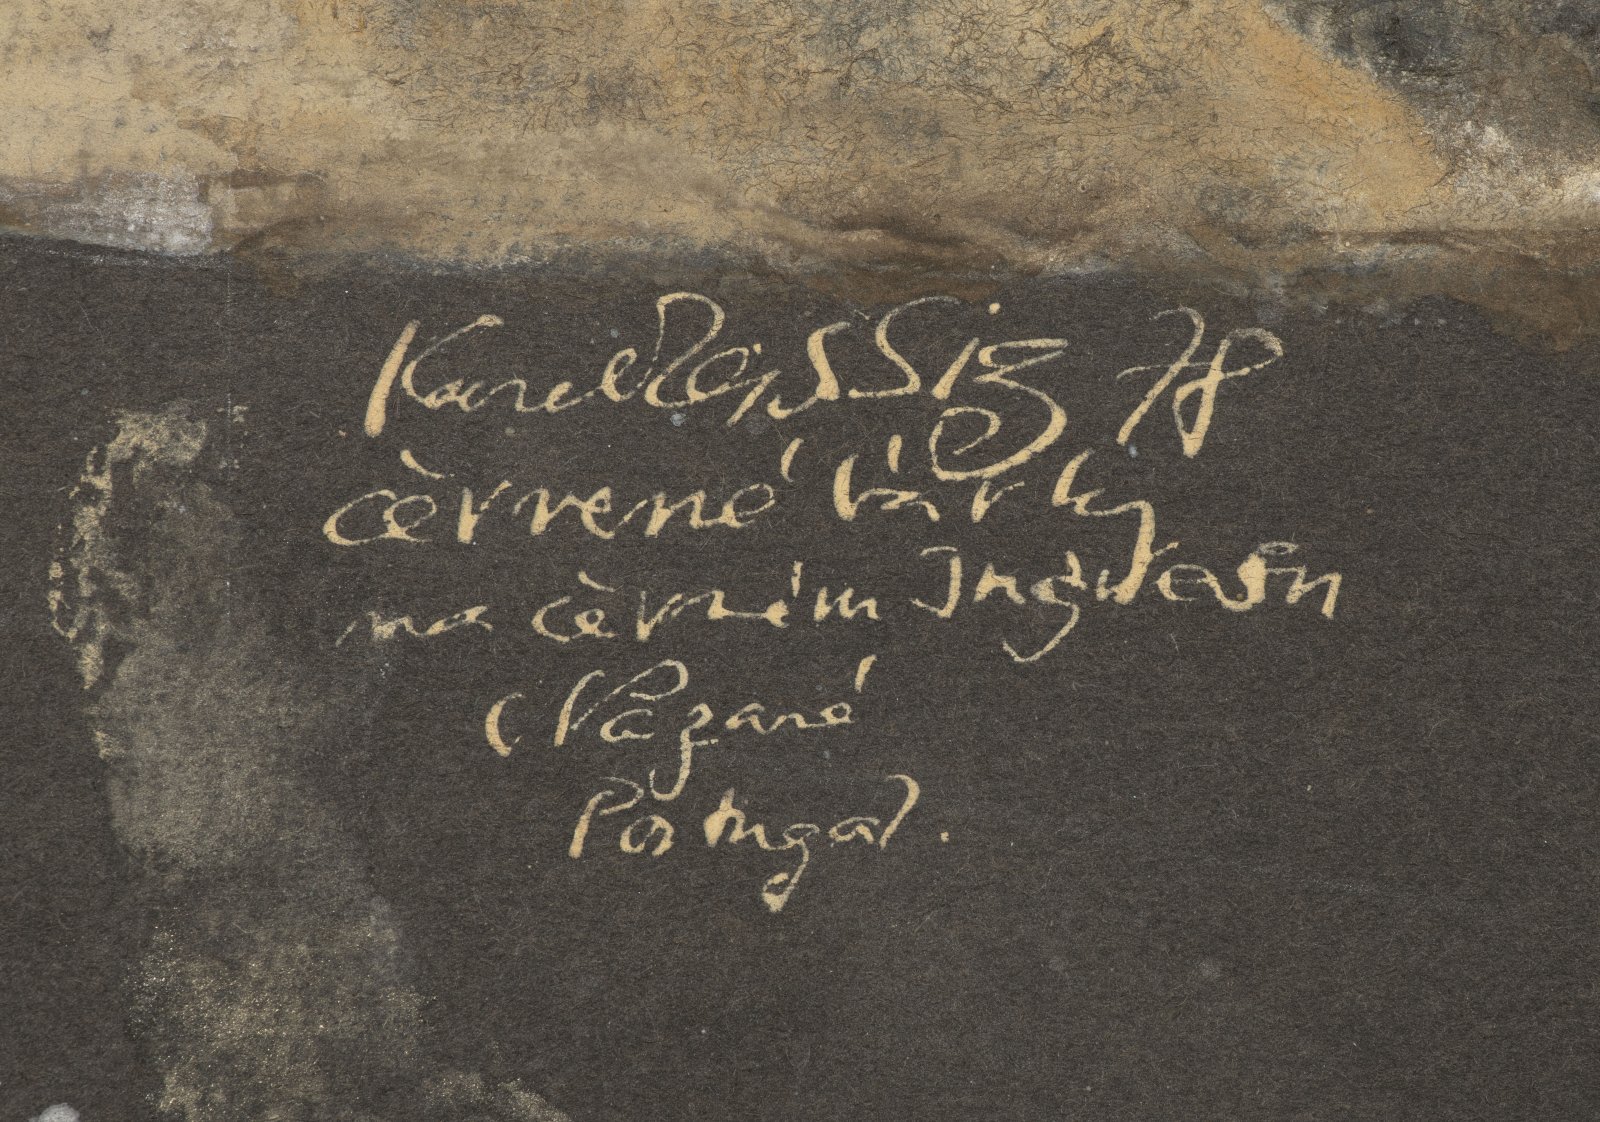 Karel Rossig 78
červené bárky
na černém Ingresu
(Nazaré
Portugal).